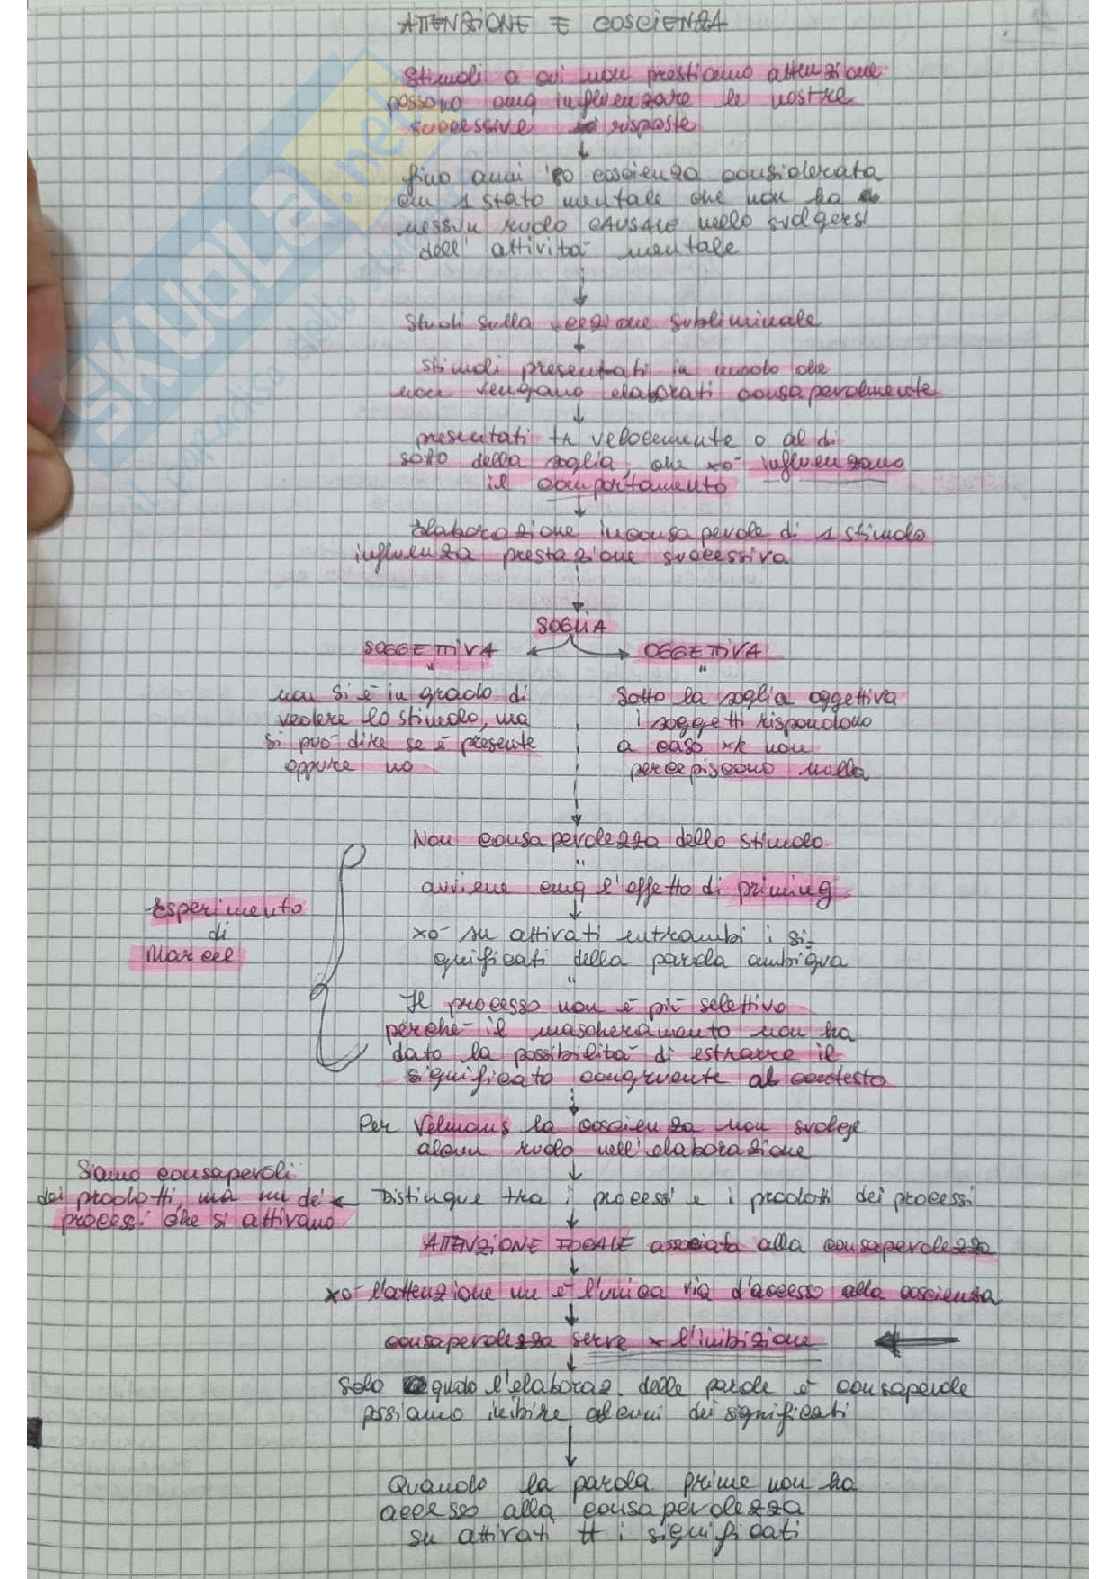 ATTENZIONE E COSCIENZA
Stimoli a cui non prestiamo attenzione
possono cmq influenzare le nostre
successive risposte
fino anni '80 coscienza considerata
cm 1 stato mentale che non ha
nessun ruolo CAUSALE nello svolgersi
dell' attività mentale
Studi sulla subliminale
stimoli presentati in modo che
non vengano elaborati consapevolmente
presentati tr velocemente o al di
sotto della soglia, che xò influenzano
il comportamento
Elaborazione inconsapevole di 1 stimolo
influenza prestazione successiva
SOGLIA
SOGGETTIVA
OGGETTIVA
non si è in grado di
vedere lo stimolo, ma
si può dire se è presente
oppure no
Sotto la soglia oggettiva
i soggetti rispondono
a caso xk non
percepiscono nulla
Non consapevolezza dello stimolo
avviene cmq l'effetto di priming
Esperimento
di
Marcel
xò sn attivati entrambi i si-
gnificati della parola ambigua
Il processo non è più selettivo
perché il mascheramento non ha
dato la possibilità di estrarre il
significato congruente al contesto
Per Velmans la coscienza non svolge
alcun ruolo nell'elaborazione
Siamo consapevoli
dei prodotti, ma nn dei
processi che si attivano
Distingue tra i processi e i prodotti dei processi
ATTENZIONE FOCALE associata alla consapevolezza
xò l'attenzione nn è l'unica via d'accesso alla coscienza
consapevolezza serve x l'inibizione
Solo qndo l'elaboraz. delle parole è consapevole
possiamo inibire alcuni dei significati
Quando la parola prime non ha
accesso alla consapevolezza
sn attivati tt i significati
SKUOLA.net